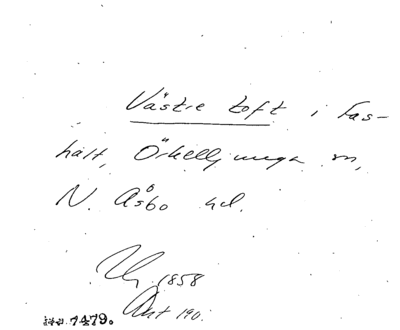 Västre toft i Fas-
hält, Örkelljunga sn,
N. Åsbo hd.
1858
Akt 190.
7479.